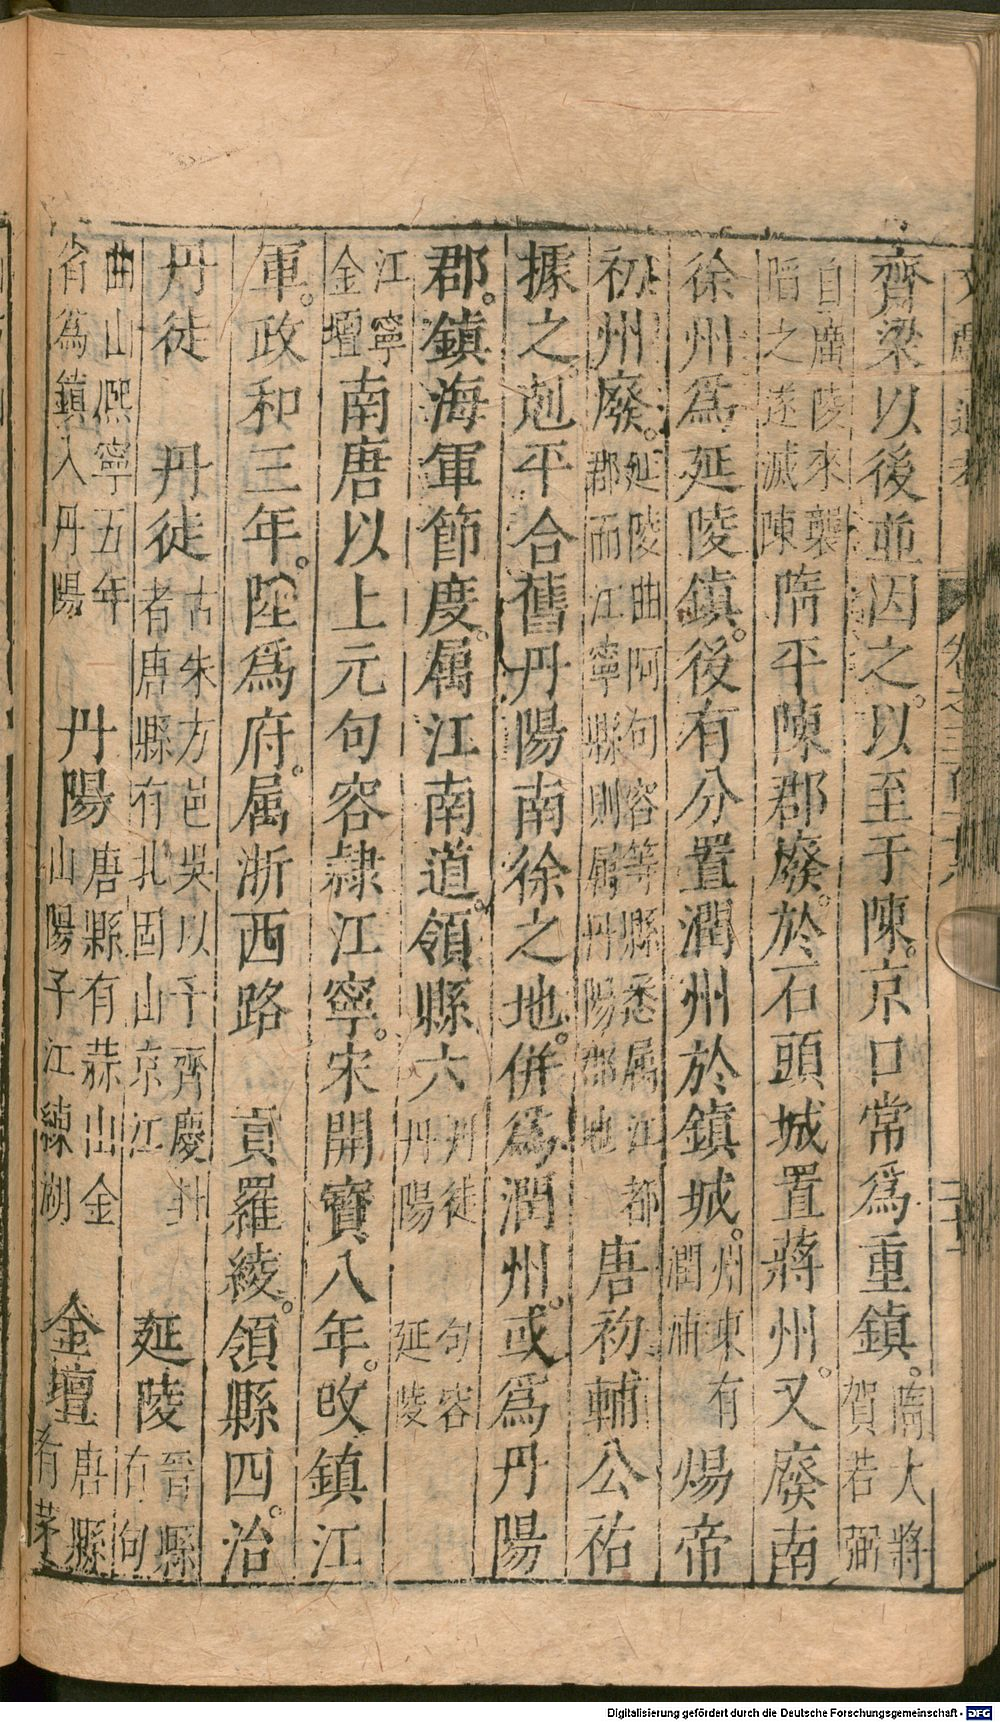 齊梁以後並因之。以至于陳。京口常爲重鎮。隋大將賀若弼
自廣陵來襲㗖之遂滅陳隋平陳郡廢。於石頭城置蔣州。又廢南
徐州爲延陵鎮。後有分置潤州於鎮城。州東有潤浦煬帝
初州廢。延陵曲阿句容等縣悉属江都郡而江寧縣則属丹陽郡地唐初輔公祐
據之。剋平合舊丹陽南徐之地。併爲潤州。或爲丹陽
郡。鎮海軍節度。属江南道。領縣六丹徒句容丹陽延陵
江寧金壇南唐以上元句容隷江寧。宋開寶八年。改鎮江
軍。政和三年。陞爲府。属浙西路 貢羅綾。領縣四。治
丹徒 丹徒古朱方邑吳以予齊慶封者唐縣有北固山京江 延陵晉縣有句
曲山熈寧五年省爲鎮入丹陽 丹陽唐縣有蒜山金山陽子江練湖 金壇唐縣有茅
文獻通考 卷之三百十八 二十
Digitalisierung gefördert durch die Deutsche Forschungsgemeinschaft - DFG